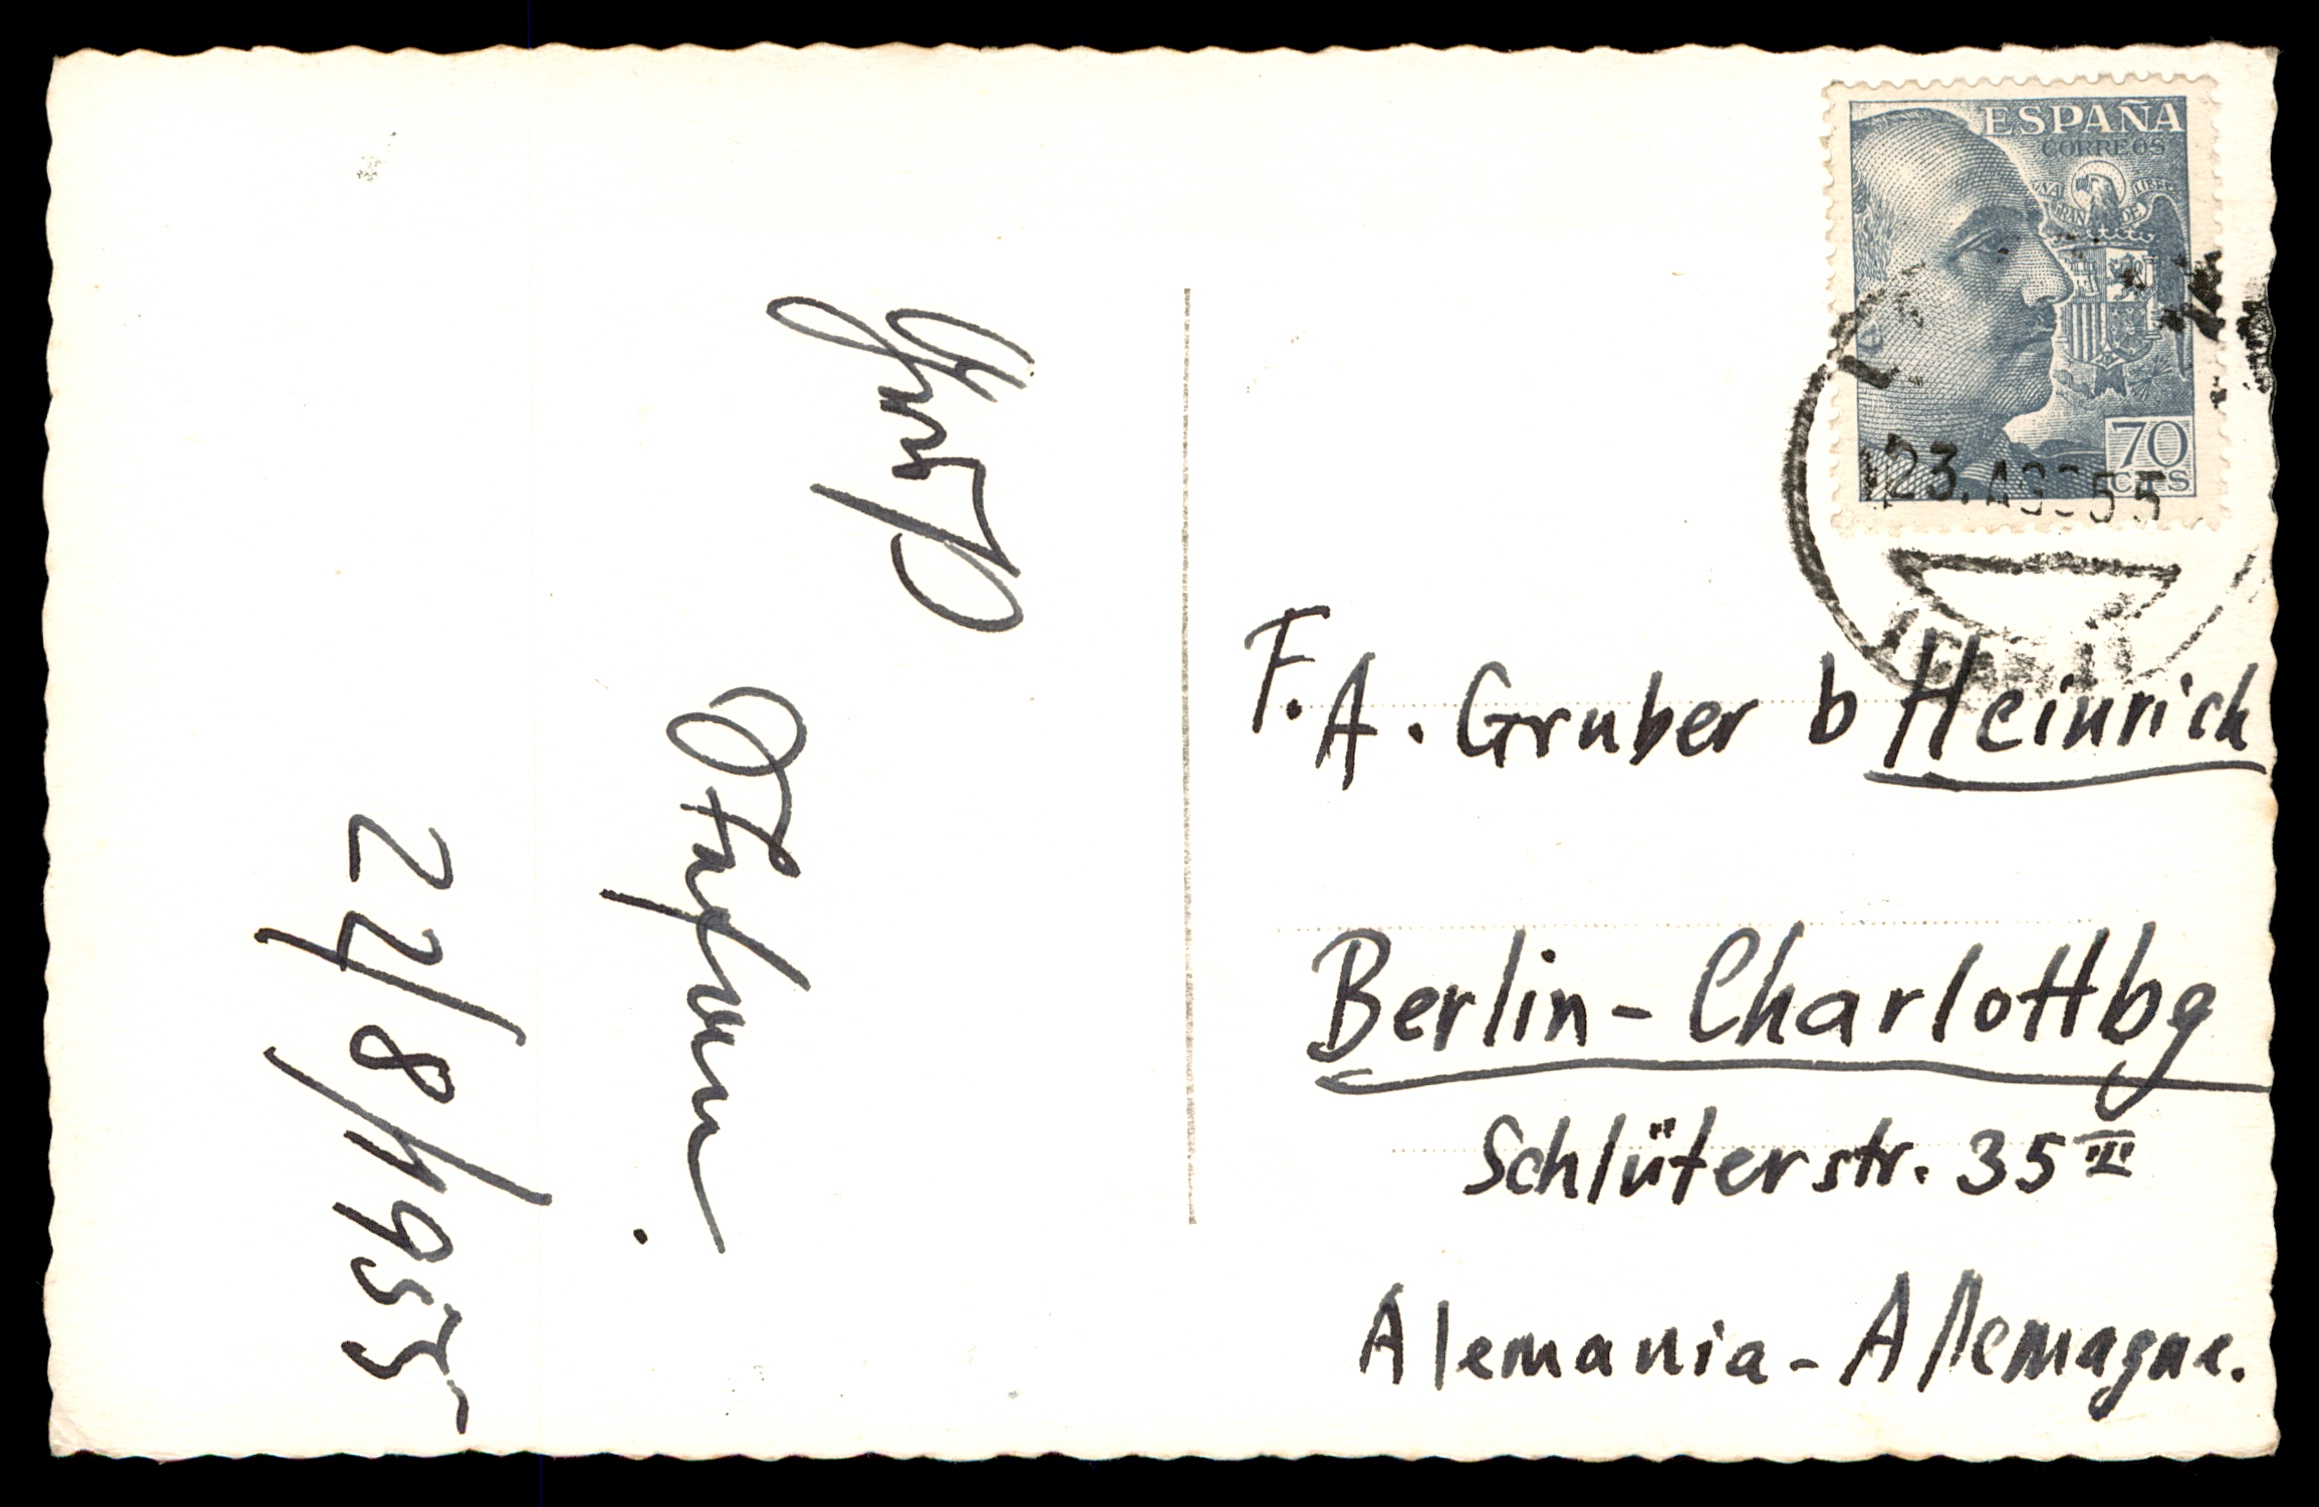 Gruß
22/8/1955
ESPAÑA
CORREOS
UNA GRANDE LIBRE
70
CTS
23.AGO 55
F. A. Gruber b Heinrich
Berlin-Charlottbg
Schlüterstr. 35 III
Alemania - Allemagne.